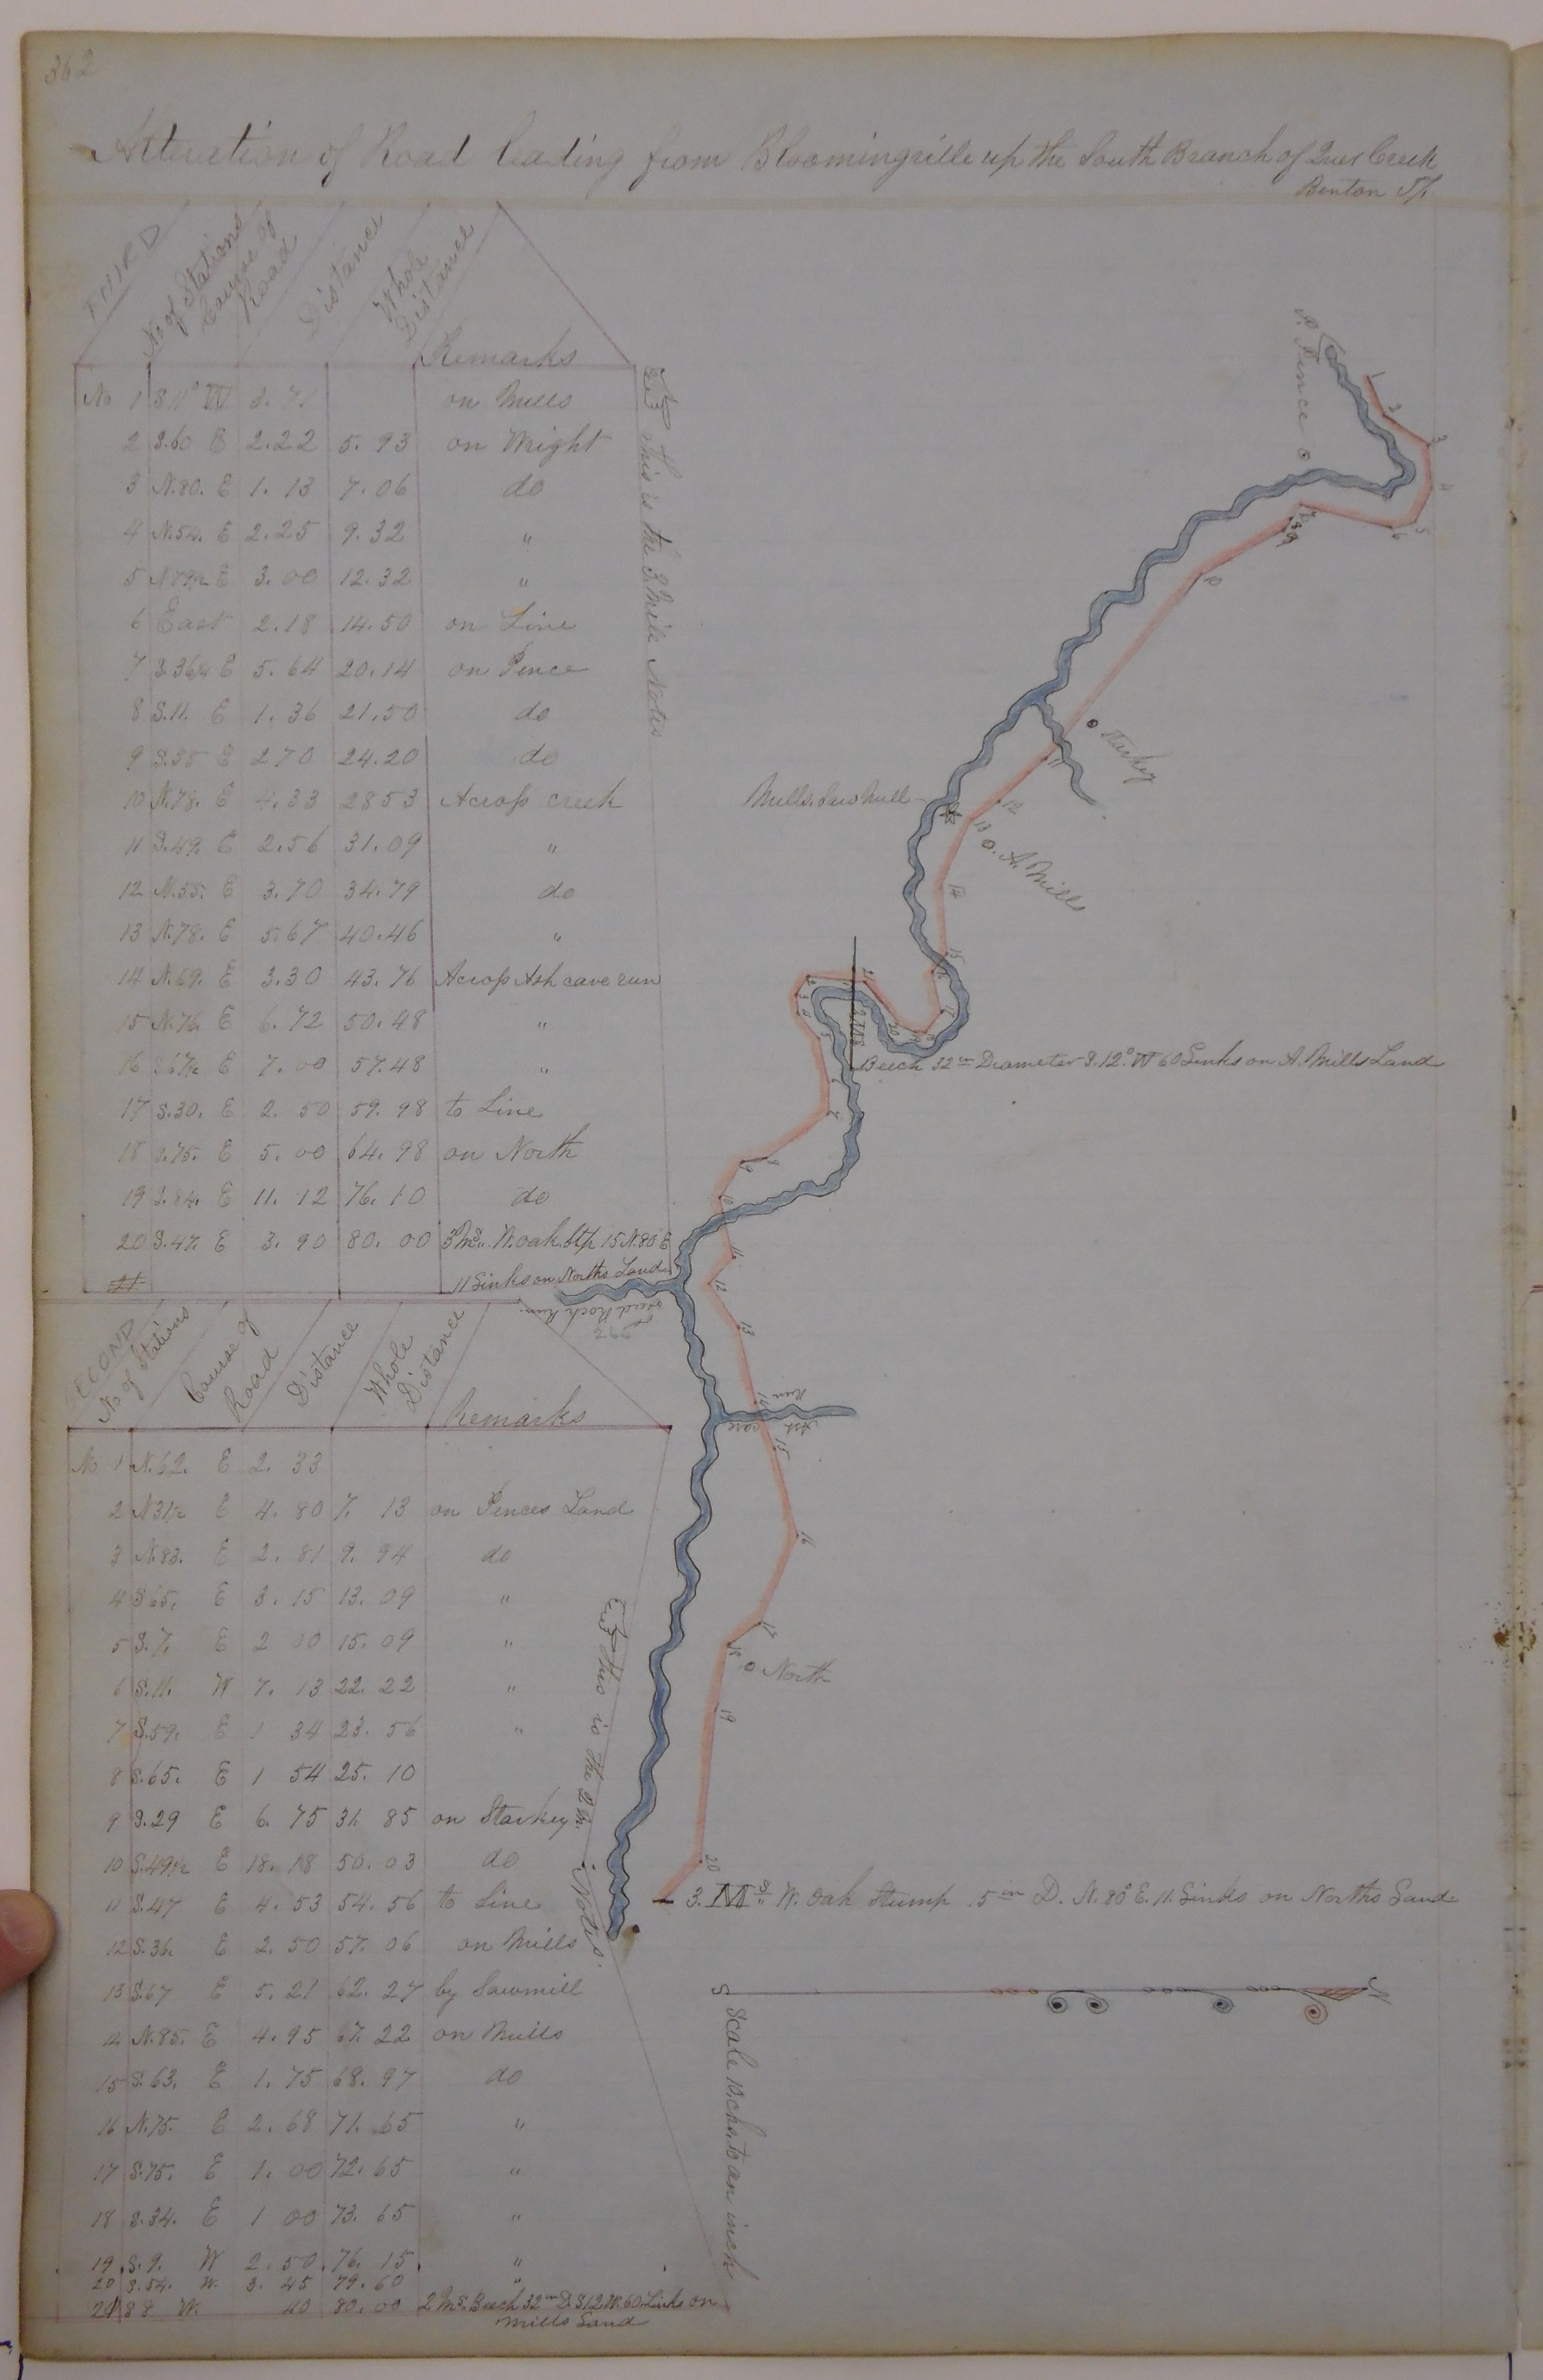 362
Alteration of Road leading from Bloomingville up the South Branch of Quer Creek
Benton Tp.
THIRD
No of Stations
Course of Road
Distance
Whole Distance
Remarks
No 1 S.11° W 3.71 on Mills
2 S.60 E 2.22 5.93 on Wright
3 N.80. E 1.13 7.06 do
4 N.54. E 2.25 9.32 "
5 E 3.00 12.32 "
6 East 2.18 14.50 on Line
7 S.36¼ E 5.64 20.14 on Pence
8 S.11. E 1.36 21.50 do
9 S.55 E 2.70 24.20 do
10 N.78. E 4.33 28 53 Across creek
11 S.49. E 2.56 31.09 "
12 N.55. E 3.70 34.79 do
13 N.78. E 5.67 40.46 "
14 N.69. E 3.30 43.76 Across Ash cave run
15 N.76. E 6.72 50.48 "
16 S67½ E 7.00 57.48 "
17 S.30. E 2.50 59.98 to Line
18 S.75. E 5.00 64.98 on North
19 S.84. E 11.12 76.10 do
20 S.47. E 3.90 80.00 3 Ms. W. oak Stp 15 N.80 E
11 Links on Norths Land
21
This is the 3. Mile Notes
SECOND
No of Stations
Course of Road
Distance
Whole Distance
Remarks
No 1 N.62. E 2.33
2 N31½ E 4.80 7.13 on Pences Land
3 N.83. E 2.81 9.94 do
4 S65. E 3.15 13.09 "
5 S.7. E 2 00 15.09 "
6 S.11. W 7.13 22.22 "
7 S.59. E 1 34 23.56 "
8 S.65. E 1 54 25.10
9 S.29 E 6.75 31.85 on Starkey
10 S.49½ E 18.18 50.03 do
11 S.47 E 4.53 54.56 to Line
12 S.36. E 2.50 57.06 on Mills
13 S.67 E 5.21 62.27 by Sawmill
14 N.85. E 4.95 67.22 on Mills
15 S.63. E 1.75 68.97 do
16 N.75. E 2.68 71.65 "
17 S.75. E 1.00 72.65 "
18 S.34. E 1 00 73.65 "
19 S.9. W 2.50 76.15 "
20 S.54. W. 3.45 79.60 "
21 S 8 W. 40 80.00 2 Ms. Beech 32 in D. S12 W. 60 Links on
Mills Land
This is the 2 M. Notes.
R. Pence
1
2
3
4
5
6
7
8
9
10
Starkey
11
12
Mills. Saw Mill
13
A. Mills
14
15
16
17
18
19
20
21
2 Ms
Beech 32 in Diameter S.12° W 60 Links on A. Mills Land
1
2
3
4
5
6
7
8
9
10
11
12
13
Rock Run.
14
Ash cave Run
15
16
17
18
North
19
20
3. Ms W. Oak Stump 15 in D. N. 80° E. 11. Links on Norths Land
S
N
Scale 10. chs. to an inch